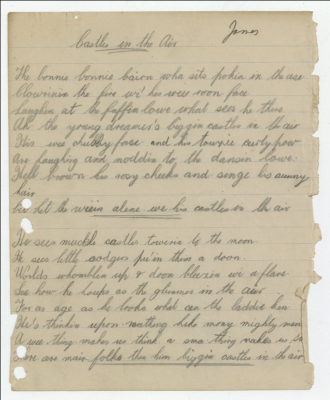 James
Castles in the Air
The bonnie bonnie bairn wha sits pokin in the ase
Glowrin in the fire wi' his wee roon face
Laughin at the fuffin lowe what sees he there
Ah the young dreamer's biggin castles in the air
His wee chubby face and his towzie curly pow
Are laughing and noddin to the dancin lowe
He'll brown his rosy cheeks and singe his sunny
hair
wi his castles in the air
He sees muckle castles towerin to the moon
He sees little sodgers pu'in them a doon
Worlds whomblin up & doon blazin wi a flare
See how he loups as the glimmer in the air
For as sage as he looks what can the laddie ken
He's thinkin upon naething like mony mighty men
A wee thing makes us think a sma thing makes us
mair folks than him biggin castles in the air